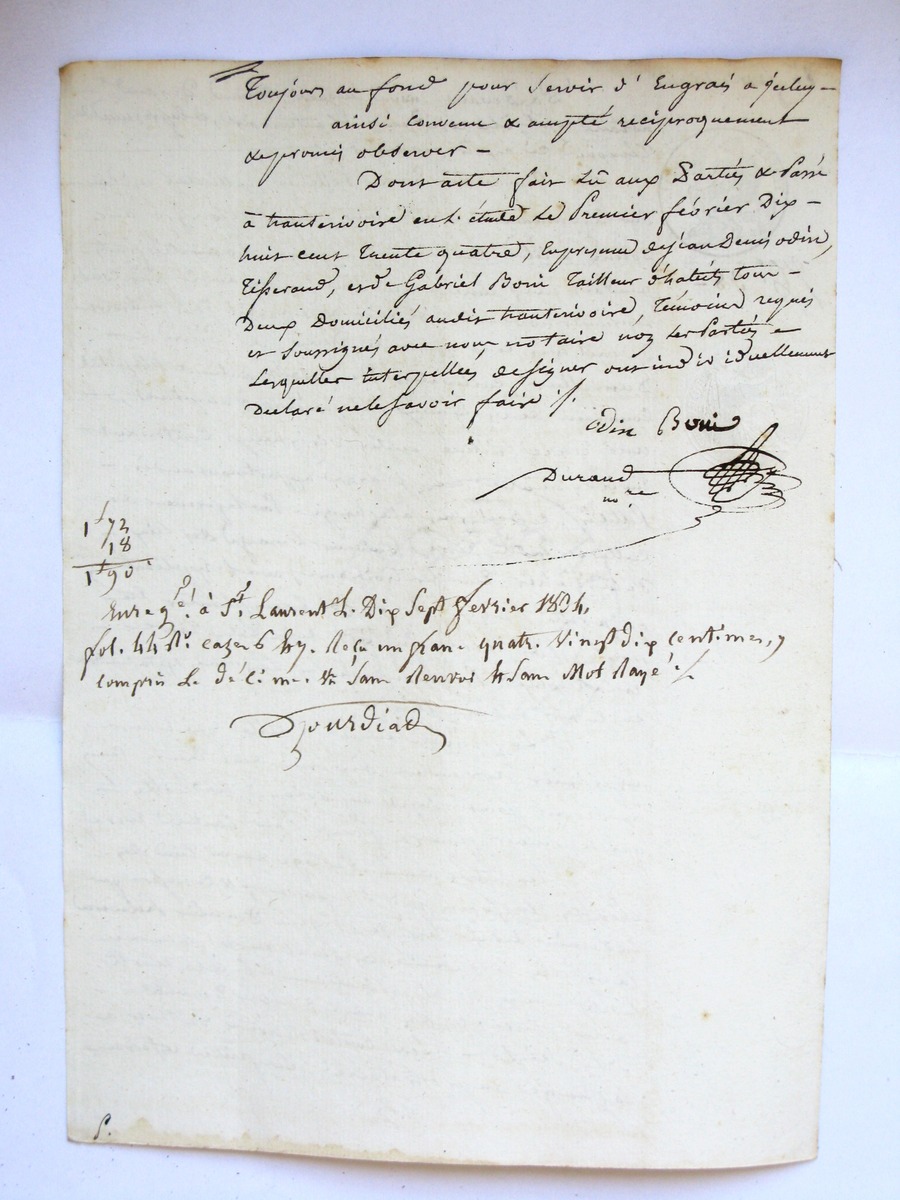 Toujours au fond pour servir d'Engrais a iceluy –
ainsi convenu & accepté réciproquement
& promis observer –
Dont acte fait Lû aux Parties & Passé
à hauterivoire en L'étude Le Premier février Dix –
huit cent Trente quatre, En présence de jean Denis odin,
Tisserand, et de Gabriel Boni Tailleur d'habits tous –
Deux Domiciliés audit hauterivoire, Témoins requis
et soussignés avec nous notaire non Les Parties –
Lesquelles interpellées de signer ont individuellement
Déclaré ne le savoir faire ./.
Odin Boni
Durand
nore
1f 72
18
1f 90c
Enregré à St. Laurent L. Dix Sept février 1834,
fol. 44 Ro. cazes 6 & 7. Reçu un franc quatre Vingt dix centimes, y
compris Le décime. & Sans Renvoi & Sans Mot Rayé ./.